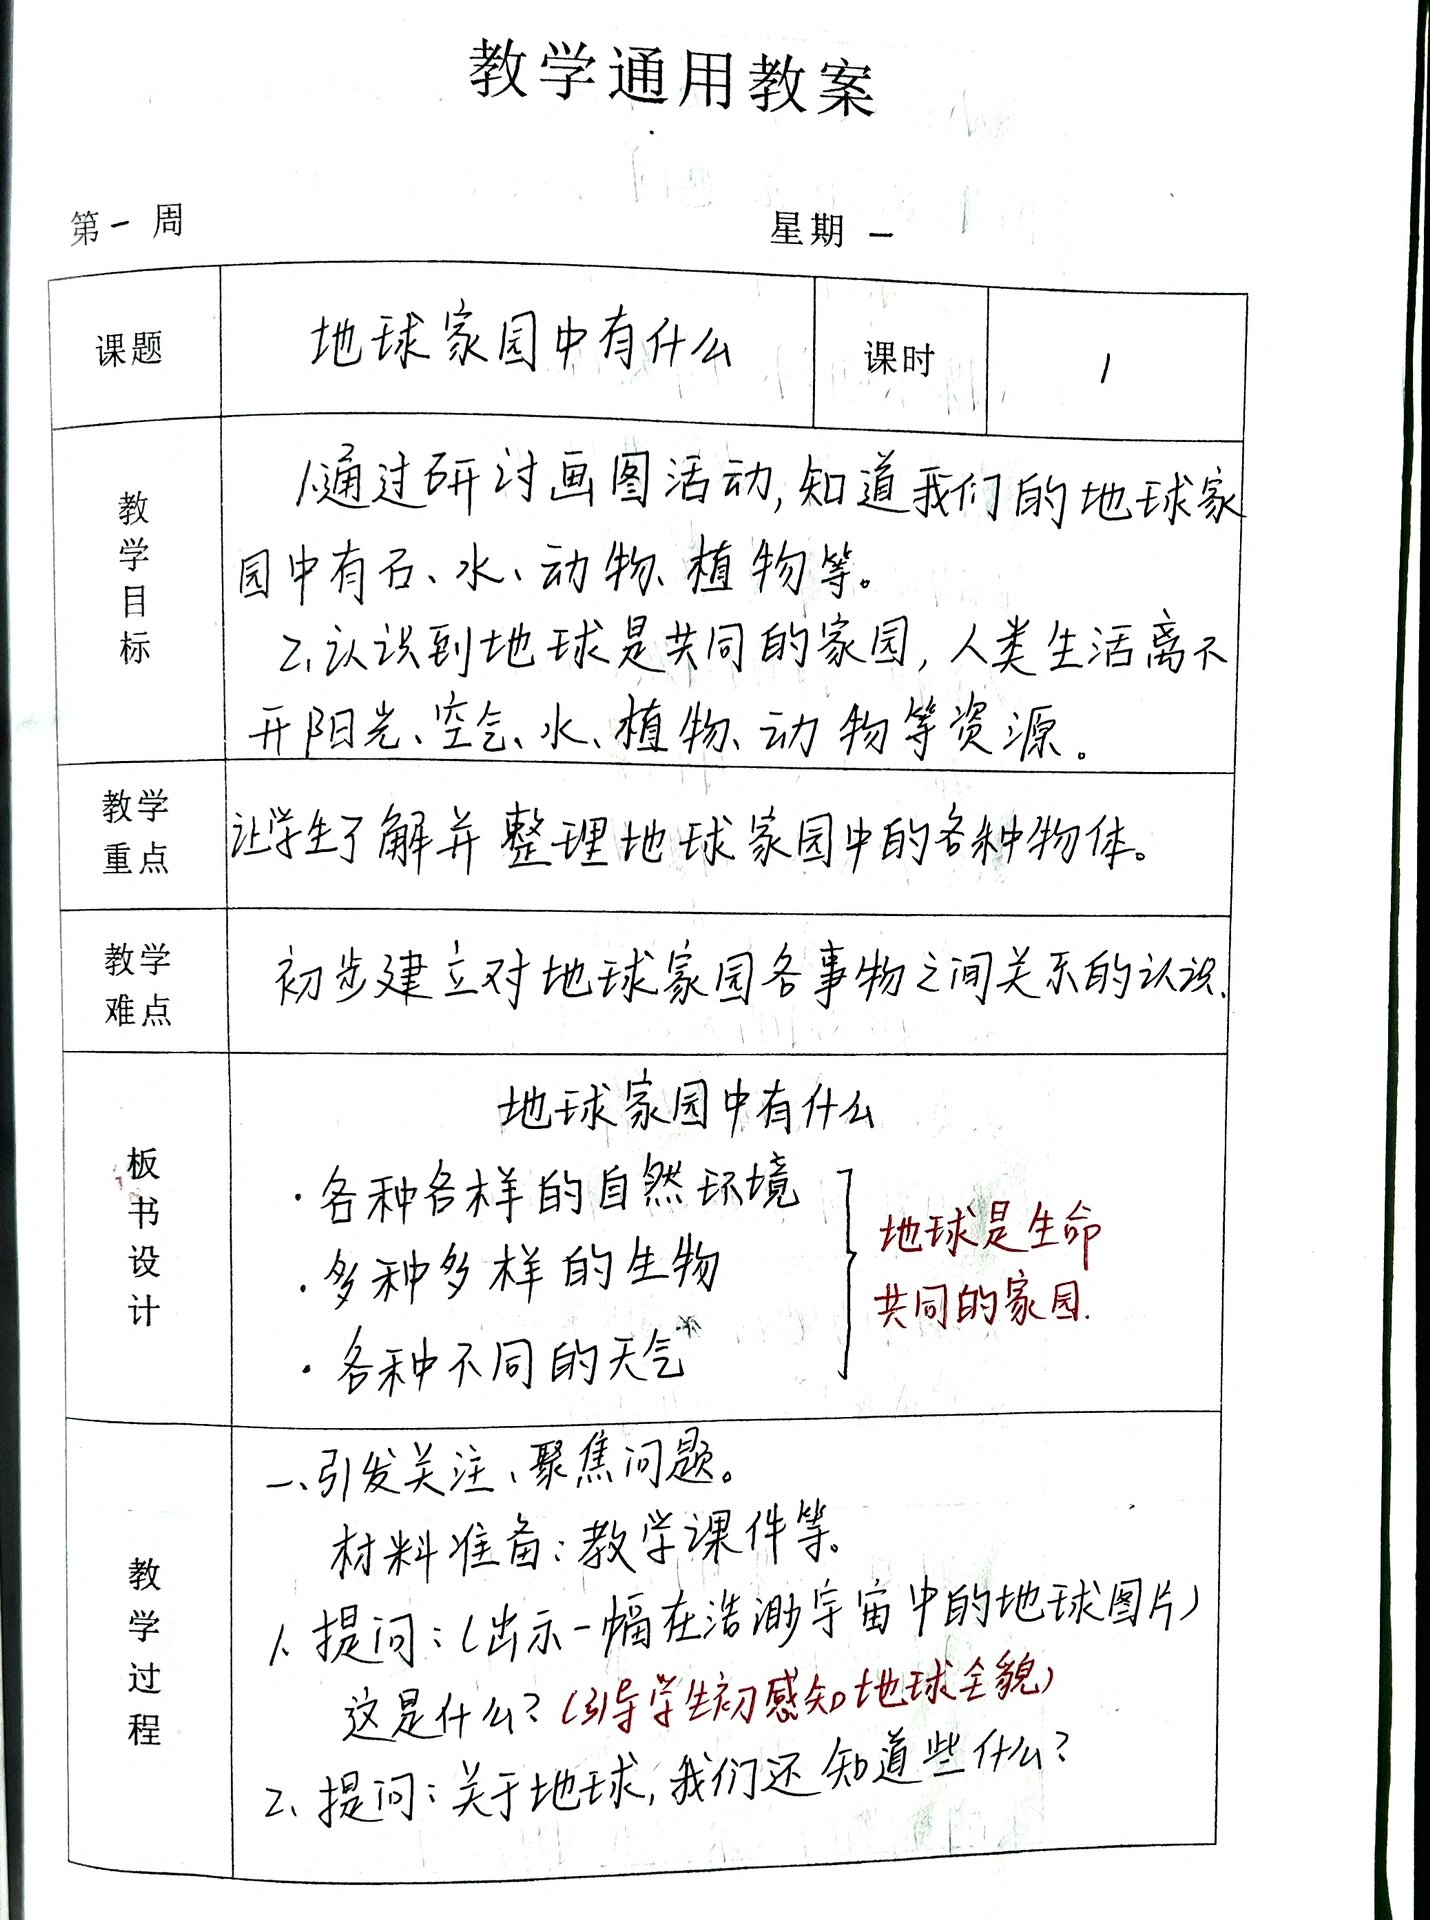 教学通用教案
第一周 星期一
课题 地球家园中有什么 课时 1
教学目标
1.通过研讨画图活动,知道我们的地球家
园中有石、水、动物、植物等。
2.认识到地球是共同的家园,人类生活离不
开阳光、空气、水、植物、动物等资源。
教学重点
让学生了解并整理地球家园中的各种物体。
教学难点
初步建立对地球家园各事物之间关系的认识.
板书设计
地球家园中有什么
·各种各样的自然环境
·多种多样的生物
·各种不同的天气
地球是生命
共同的家园.
教学过程
一、引发关注、聚焦问题。
材料准备:教学课件等。
1.提问:(出示一幅在浩渺宇宙中的地球图片)
这是什么?(引导学生初感知地球全貌)
2、提问:关于地球,我们还知道些什么?